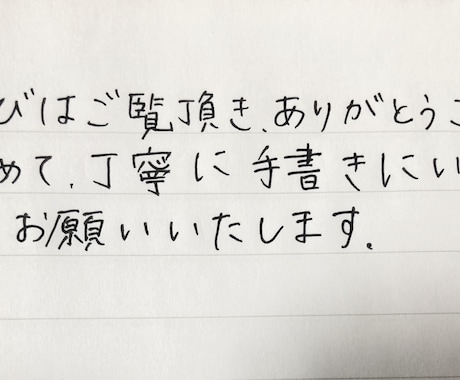 びはご覧頂き、ありがとうご
めて、丁寧に手書きにい
お願いいたします。